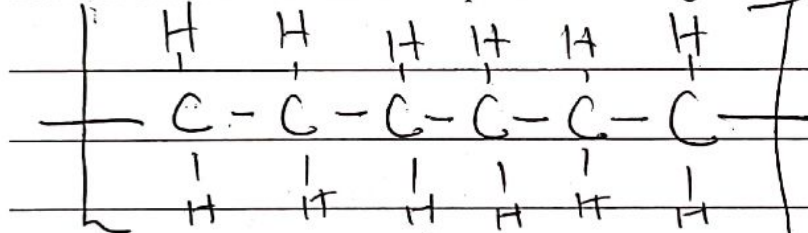 H H H H H H
C - C - C - C - C - C
H H H H H H